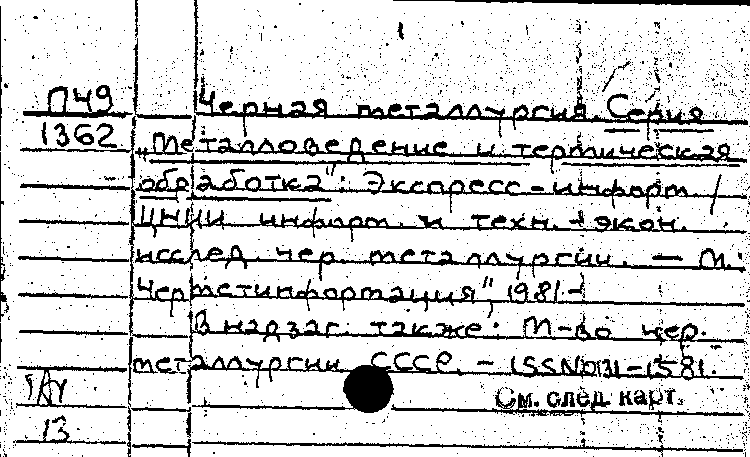 П49 Черная металлургия. Серия
1362 „Металловедение и термическая
обработка": Экспресс-информ /
ЦНИИ информ. и техн.-экон.
исслед. чер. металлургии. — М.:
Черметинформация", 1981-
В надзаг. также: М-во чер.
металлургии СССР. - ISSN 0131-1581.
См. след. карт.
13